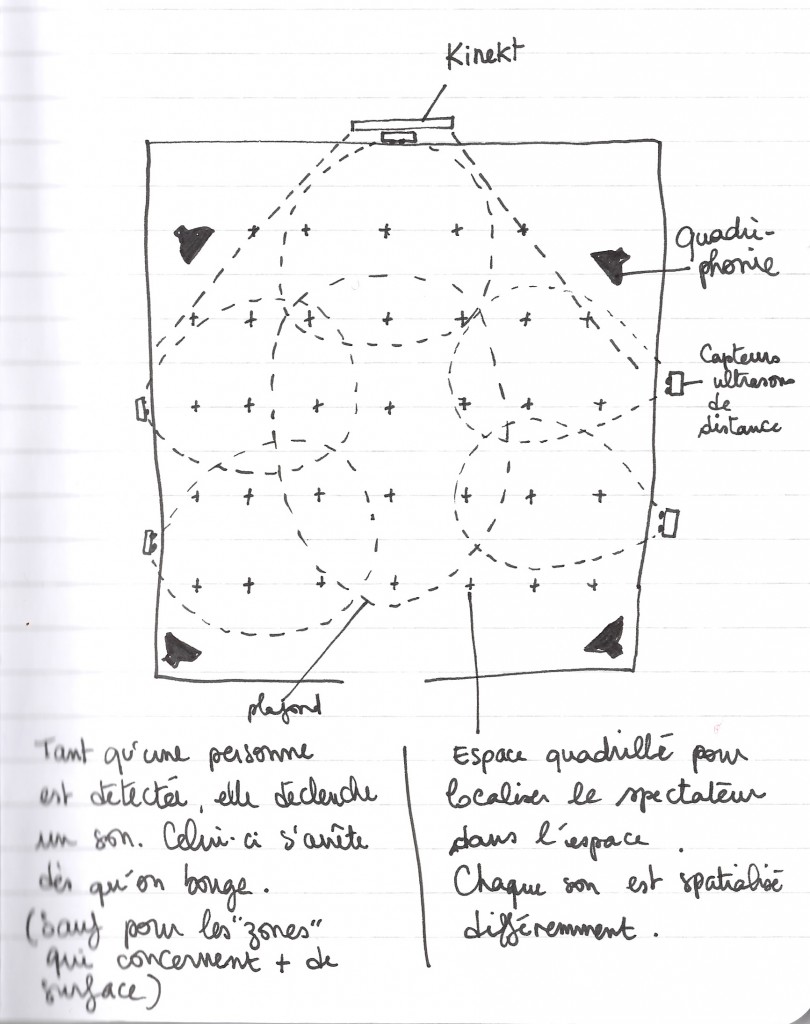 Kinekt
Quadri-
phonie
Capteurs
ultrasons
de
distance
plafond
Tant qu'une personne
est détectée, elle déclenche
un son. Celui-ci s'arrête
dès qu'on bouge.
(sauf pour les "zones"
qui concernent + de
surface)
Espace quadrillé pour
localiser le spectateur
dans l'espace.
Chaque son est spatialisé
différemment.